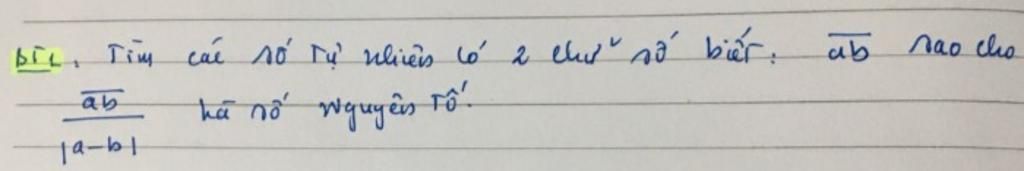 BT1. Tìm các số Tự nhiên có 2 chữ số biết: \overline{ab} sao cho
\frac{\overline{ab}}{|a-b|} là số Nguyên Tố.